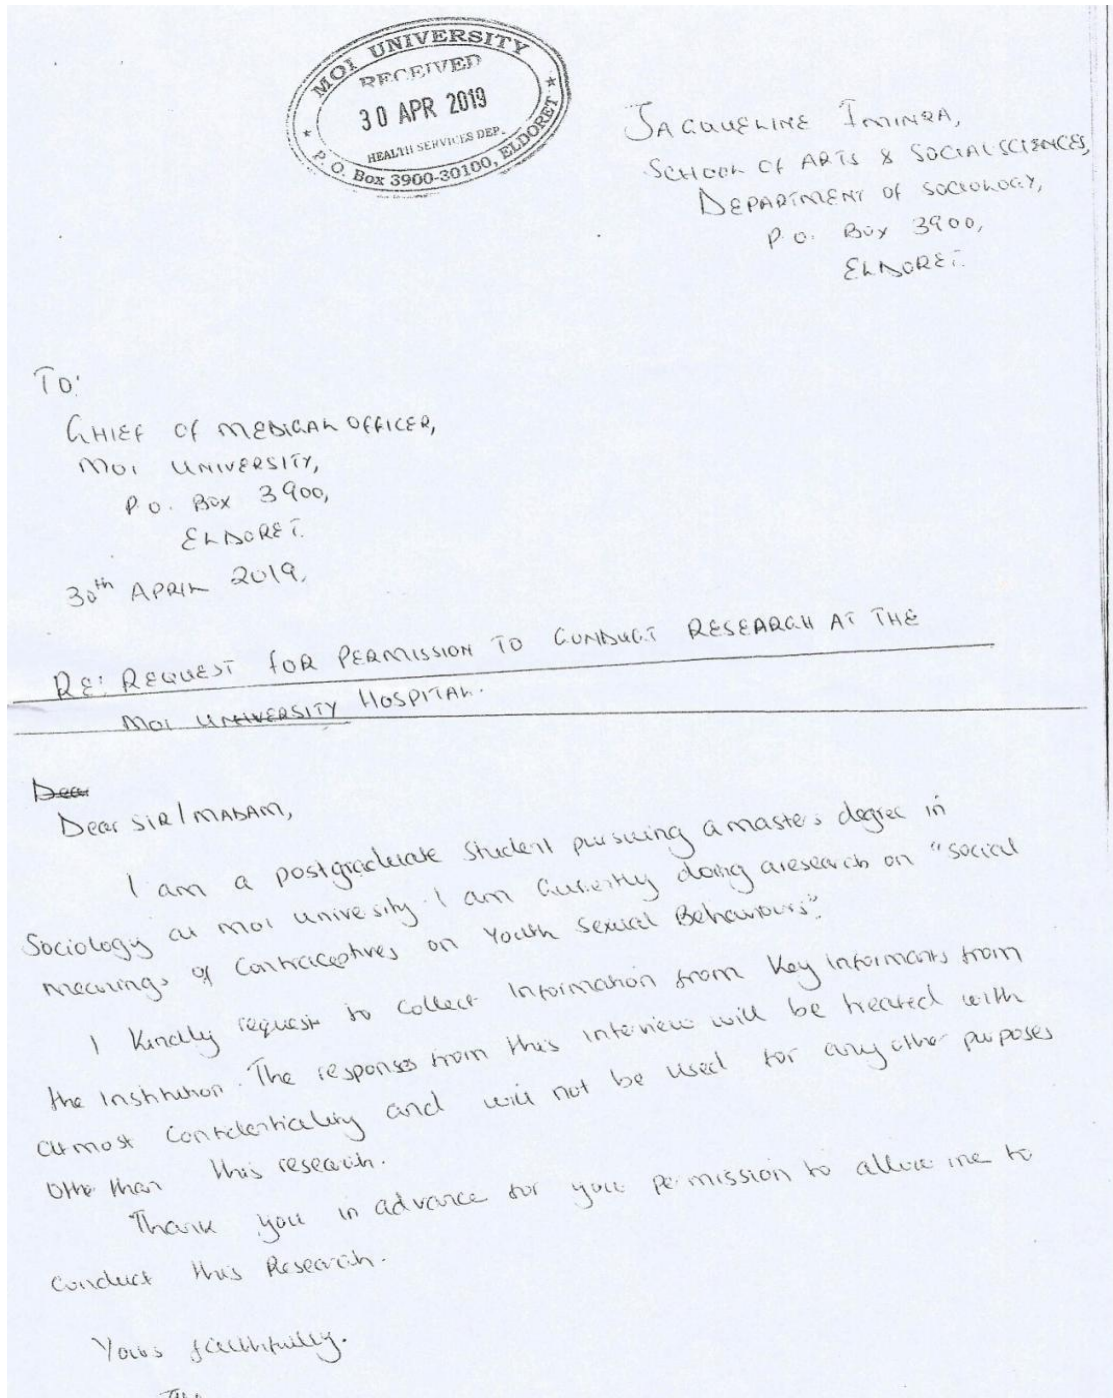 MOI UNIVERSITY
RECEIVED
30 APR 2019
HEALTH SERVICES DEP.
P. O. Box 3900-30100, ELDORET
JACQUELINE
SCHOOL OF ARTS & SOCIAL SCIENCES,
DEPARTMENT OF SOCIOLOGY,
P.O. Box 3900,
ELDORET.
TO:
CHIEF OF MEDICAL OFFICER,
MOI UNIVERSITY,
P.O. Box 3900,
ELDORET.
30th APRIL 2019,
RE: REQUEST FOR PERMISSION TO CONDUCT RESEARCH AT THE
MOI UNIVERSITY HOSPITAL.
Dear
Dear SIR/MADAM,
I am a postgraduate student pursuing a masters degree in
Sociology at Moi University. I am currently doing a research on "Social
meanings of Contraceptives on Youth Sexual Behaviours".
I Kindly request to collect Information from Key Informants from
the Institution. The responses from this interview will be treated with
utmost Confidentiality and will not be used for any other purposes
Other than this research.
Thank you in advance for your permission to allow me to
Conduct this Research.
Yours faithfully.